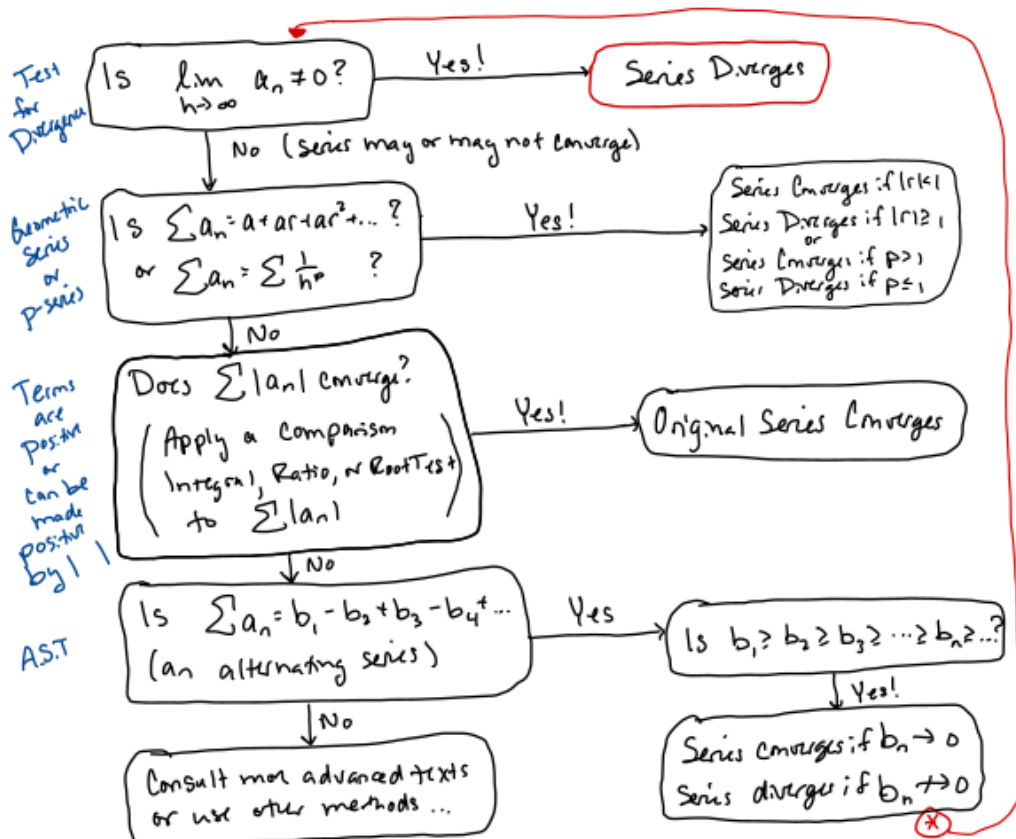 Test
for
Divergence
Is lim a_n ≠ 0?
n→∞
Yes!
Series Diverges
No (series may or may not converge)
Geometric
Series
or
p-series
Is ∑ a_n = a + ar + ar² + ... ?
or ∑ a_n = ∑ 1/n^p ?
Yes!
Series Converges if |r|<1
Series Diverges if |r|≥1
or
Series Converges if p>1
Series Diverges if p≤1
No
Terms
are
positive
or
can be
made
positive
by | |
Does ∑ |a_n| converge?
(Apply a Comparison
Integral, Ratio, or Root Test
to ∑ |a_n|)
Yes!
Original Series Converges
No
A.S.T
Is ∑ a_n = b_1 - b_2 + b_3 - b_4 + ...
(an alternating series)
Yes
Is b_1 ≥ b_2 ≥ b_3 ≥ ... ≥ b_n ≥ ...?
Yes!
Series converges if b_n → 0
Series diverges if b_n ↛ 0
*
No
Consult more advanced texts
or use other methods ...